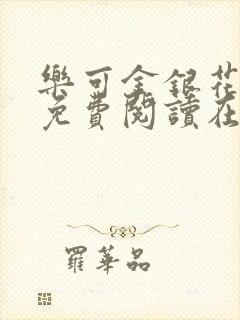 樂可金銀花
免費閱讀在
羅華品